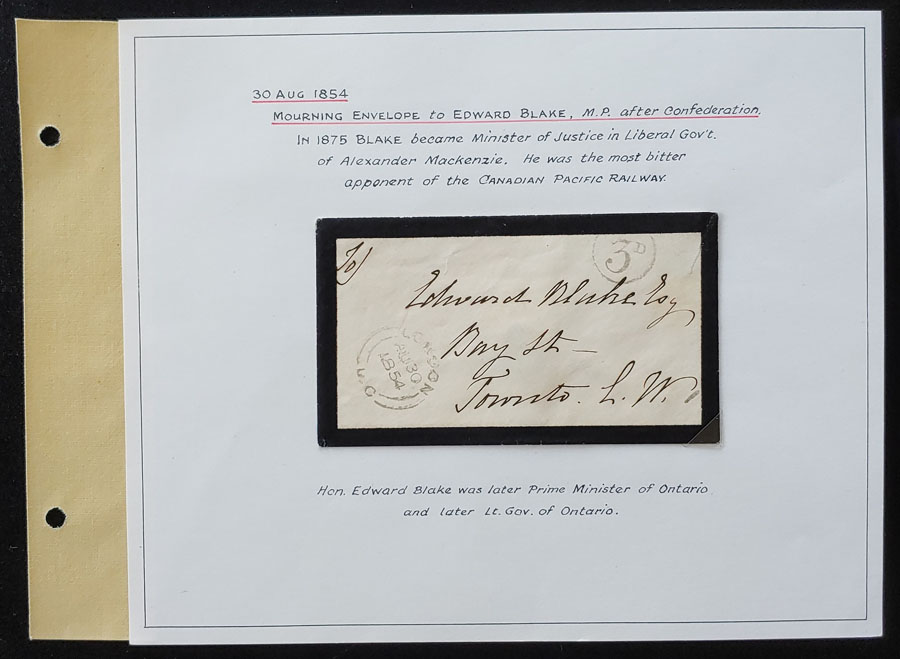 30 AUG 1854
MOURNING ENVELOPE to EDWARD BLAKE, M.P. after Confederation.
IN 1875 BLAKE became Minister of Justice in Liberal Gov't.
of Alexander Mackenzie. He was the most bitter
apponent of the CANADIAN PACIFIC RAILWAY.
To)
3D
Edward Blake Esq
Bay St —
Toronto. C. W.
LONDON
AU 30
1854
U.C
Hon. Edward Blake was later Prime Minister of Ontario
and later Lt. Gov. of Ontario.